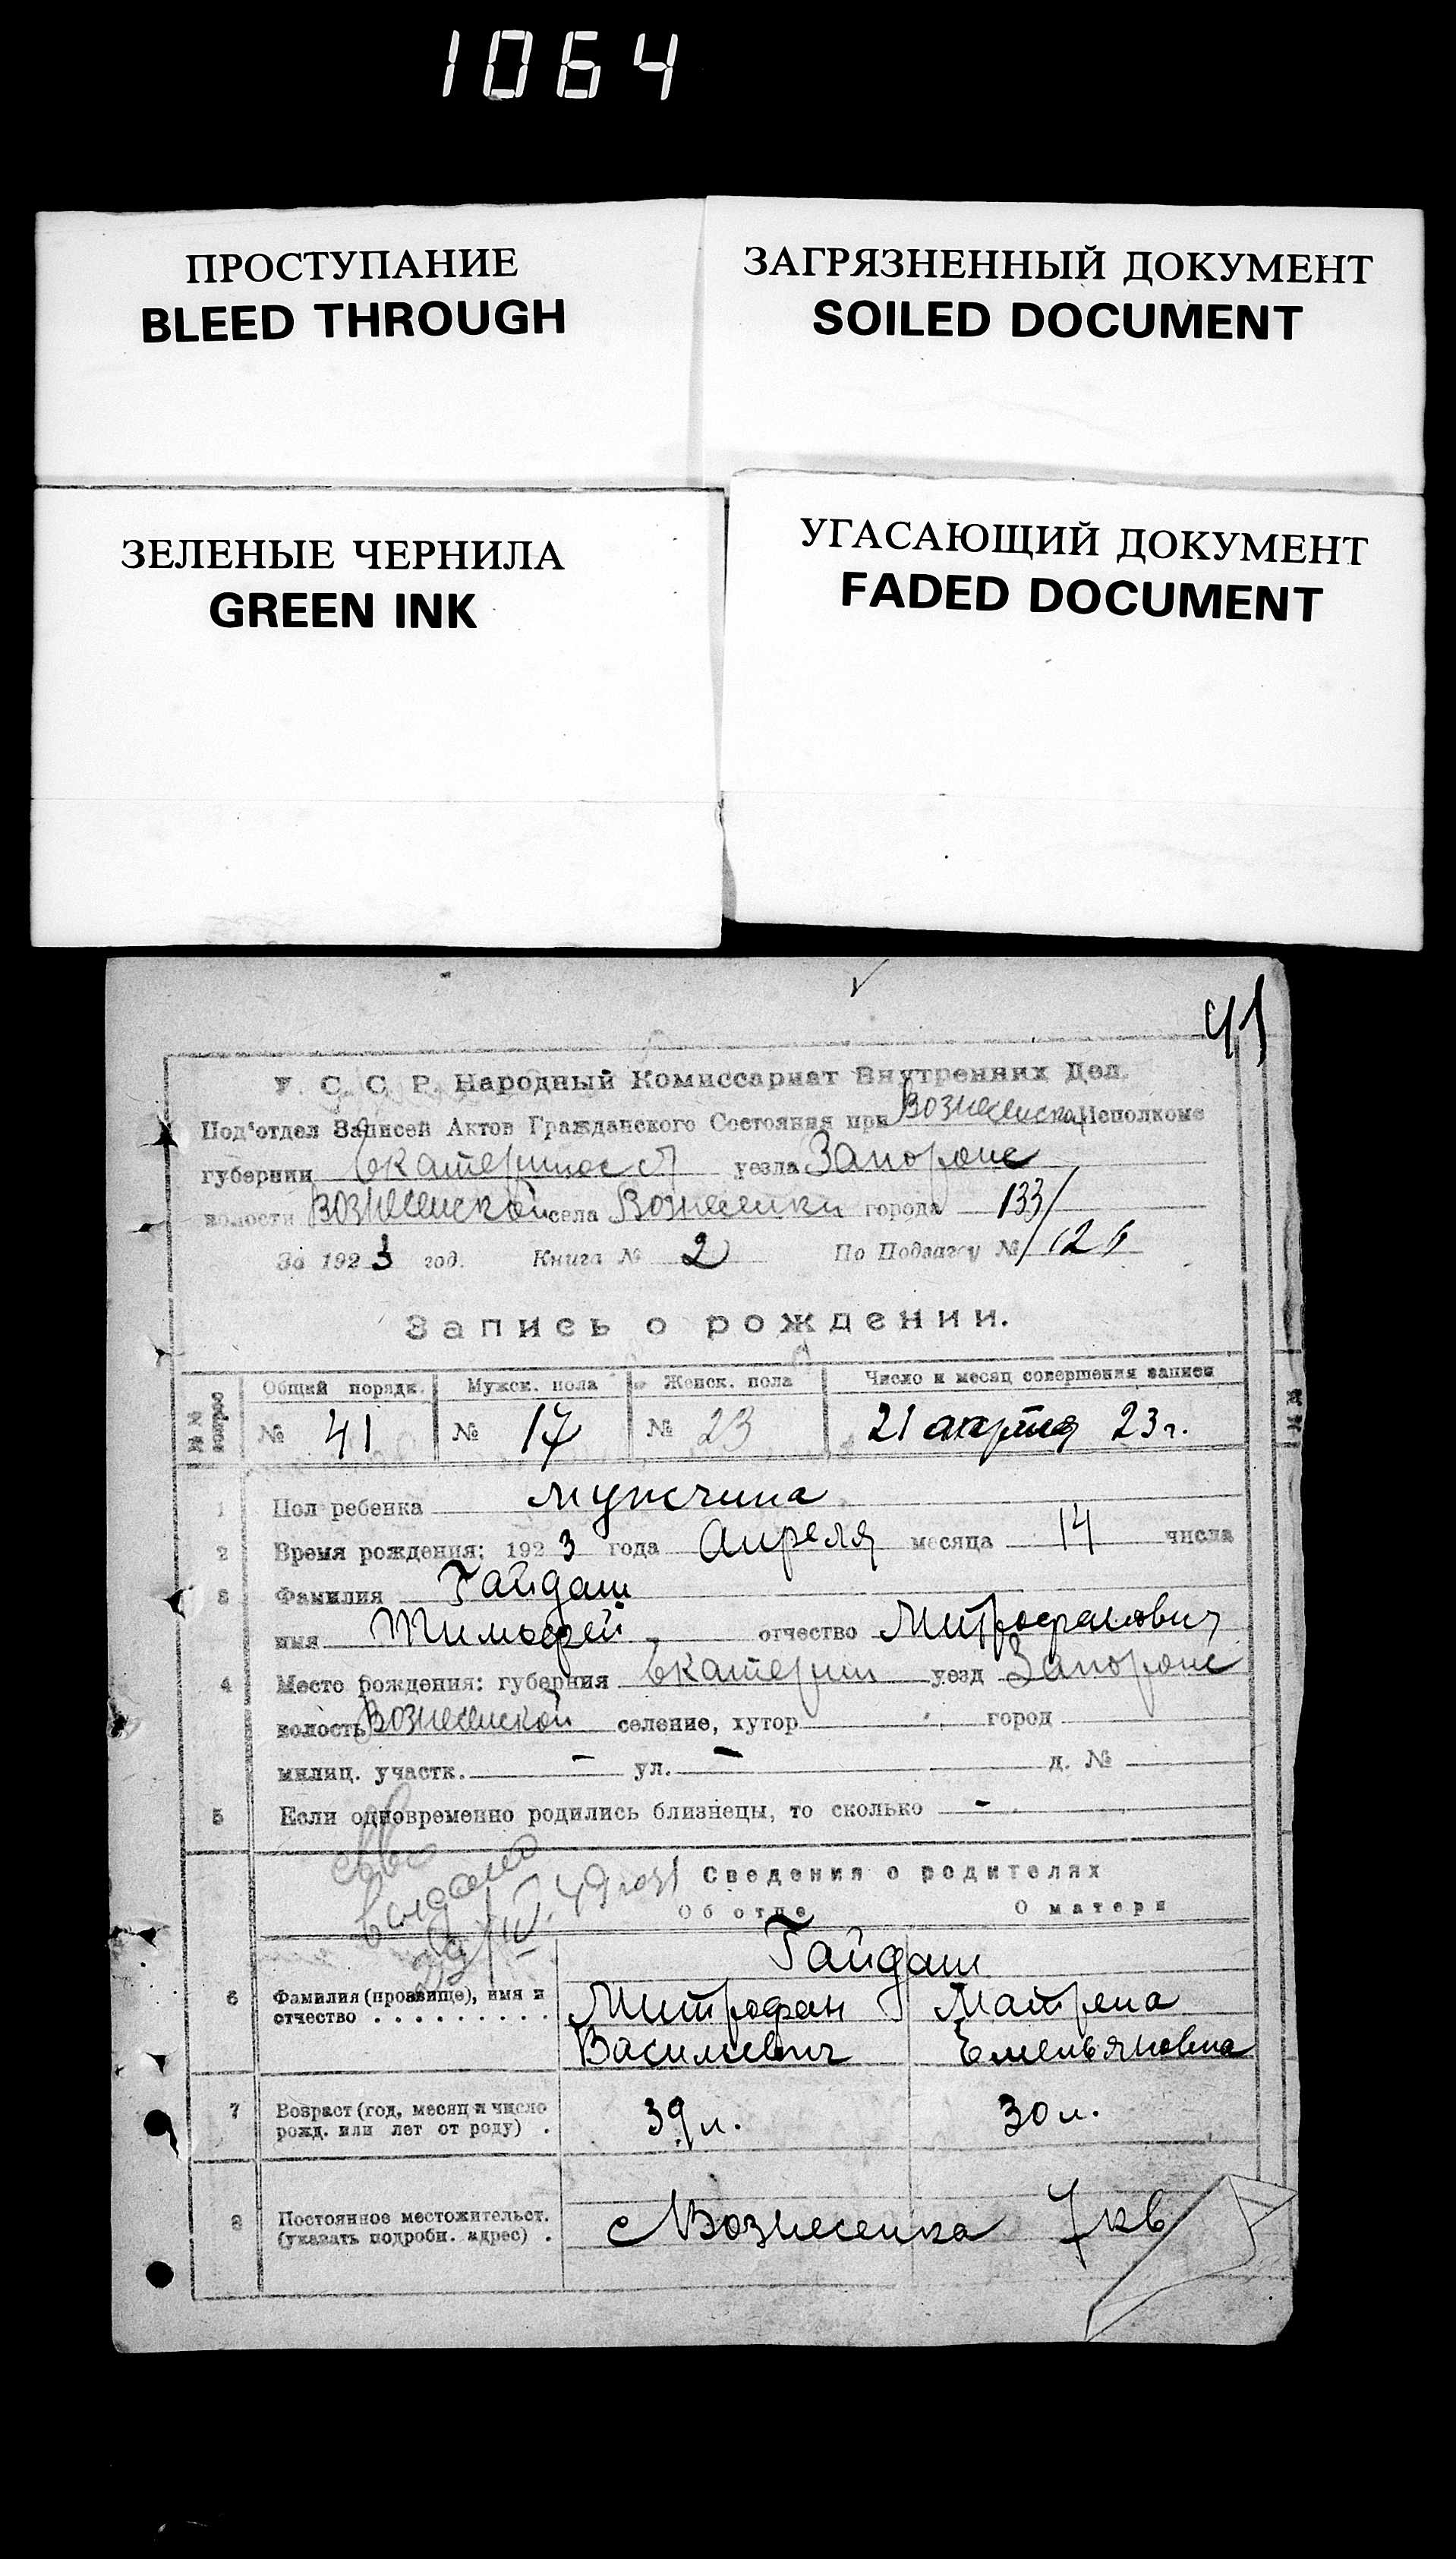 1064
ПРОСТУПАНИЕ
BLEED THROUGH
ЗАГРЯЗНЕННЫЙ ДОКУМЕНТ
SOILED DOCUMENT
ЗЕЛЕНЫЕ ЧЕРНИЛА
GREEN INK
УГАСАЮЩИЙ ДОКУМЕНТ
FADED DOCUMENT
41
У. С. С. Р. Народный Комиссариат Внутренних Дел.
Под'отдел Записей Актов Гражданского Состояния при Вознесенском Исполкоме
губернии Екатериносл уезла Запорож
волости Вознесенской села Вознесенки города 133/
За 1923 год. Книга № 2 По Подзагсу №
Запись о рождении.
№№ вопрос Общий порядк. Мужск. пола Женск. пола Число и месяц совершения записи
№ 41 № 17 № 23 21 апреля 23 г.
1 Пол ребенка мужчина
2 Время рождения: 1923 года Апреля месяца 14 числа
3 Фамилия Гайдаш
имя Тимофей отчество Митрофанович
4 Место рождения: губерния Екатерин уезд Запорож
волость Вознесенской селение, хутор город
милиц. участк. – ул. – д. №
5 Если одновременно родились близнецы, то сколько –
Сведения о родителях
Об отце О матери
Гайдаш
6 Фамилия (прозвище), имя и отчество . . . . . . . . . Митрофан Матрена
Васильевич Емельяновна
7 Возраст (год, месяц и число рожд. или лет от роду) . 39 л. 30 л.
8 Постоянное местожительст. (указать подробн. адрес) . с Вознесенка 7 кв